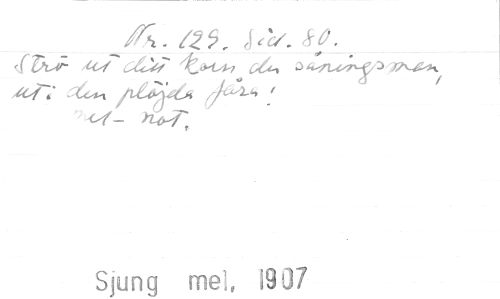 Nr. 129. Sid. 80.
Strö ut ditt korn du såningsman,
uti den plöjda fåra!
mel- not.
Sjung mel, 1907